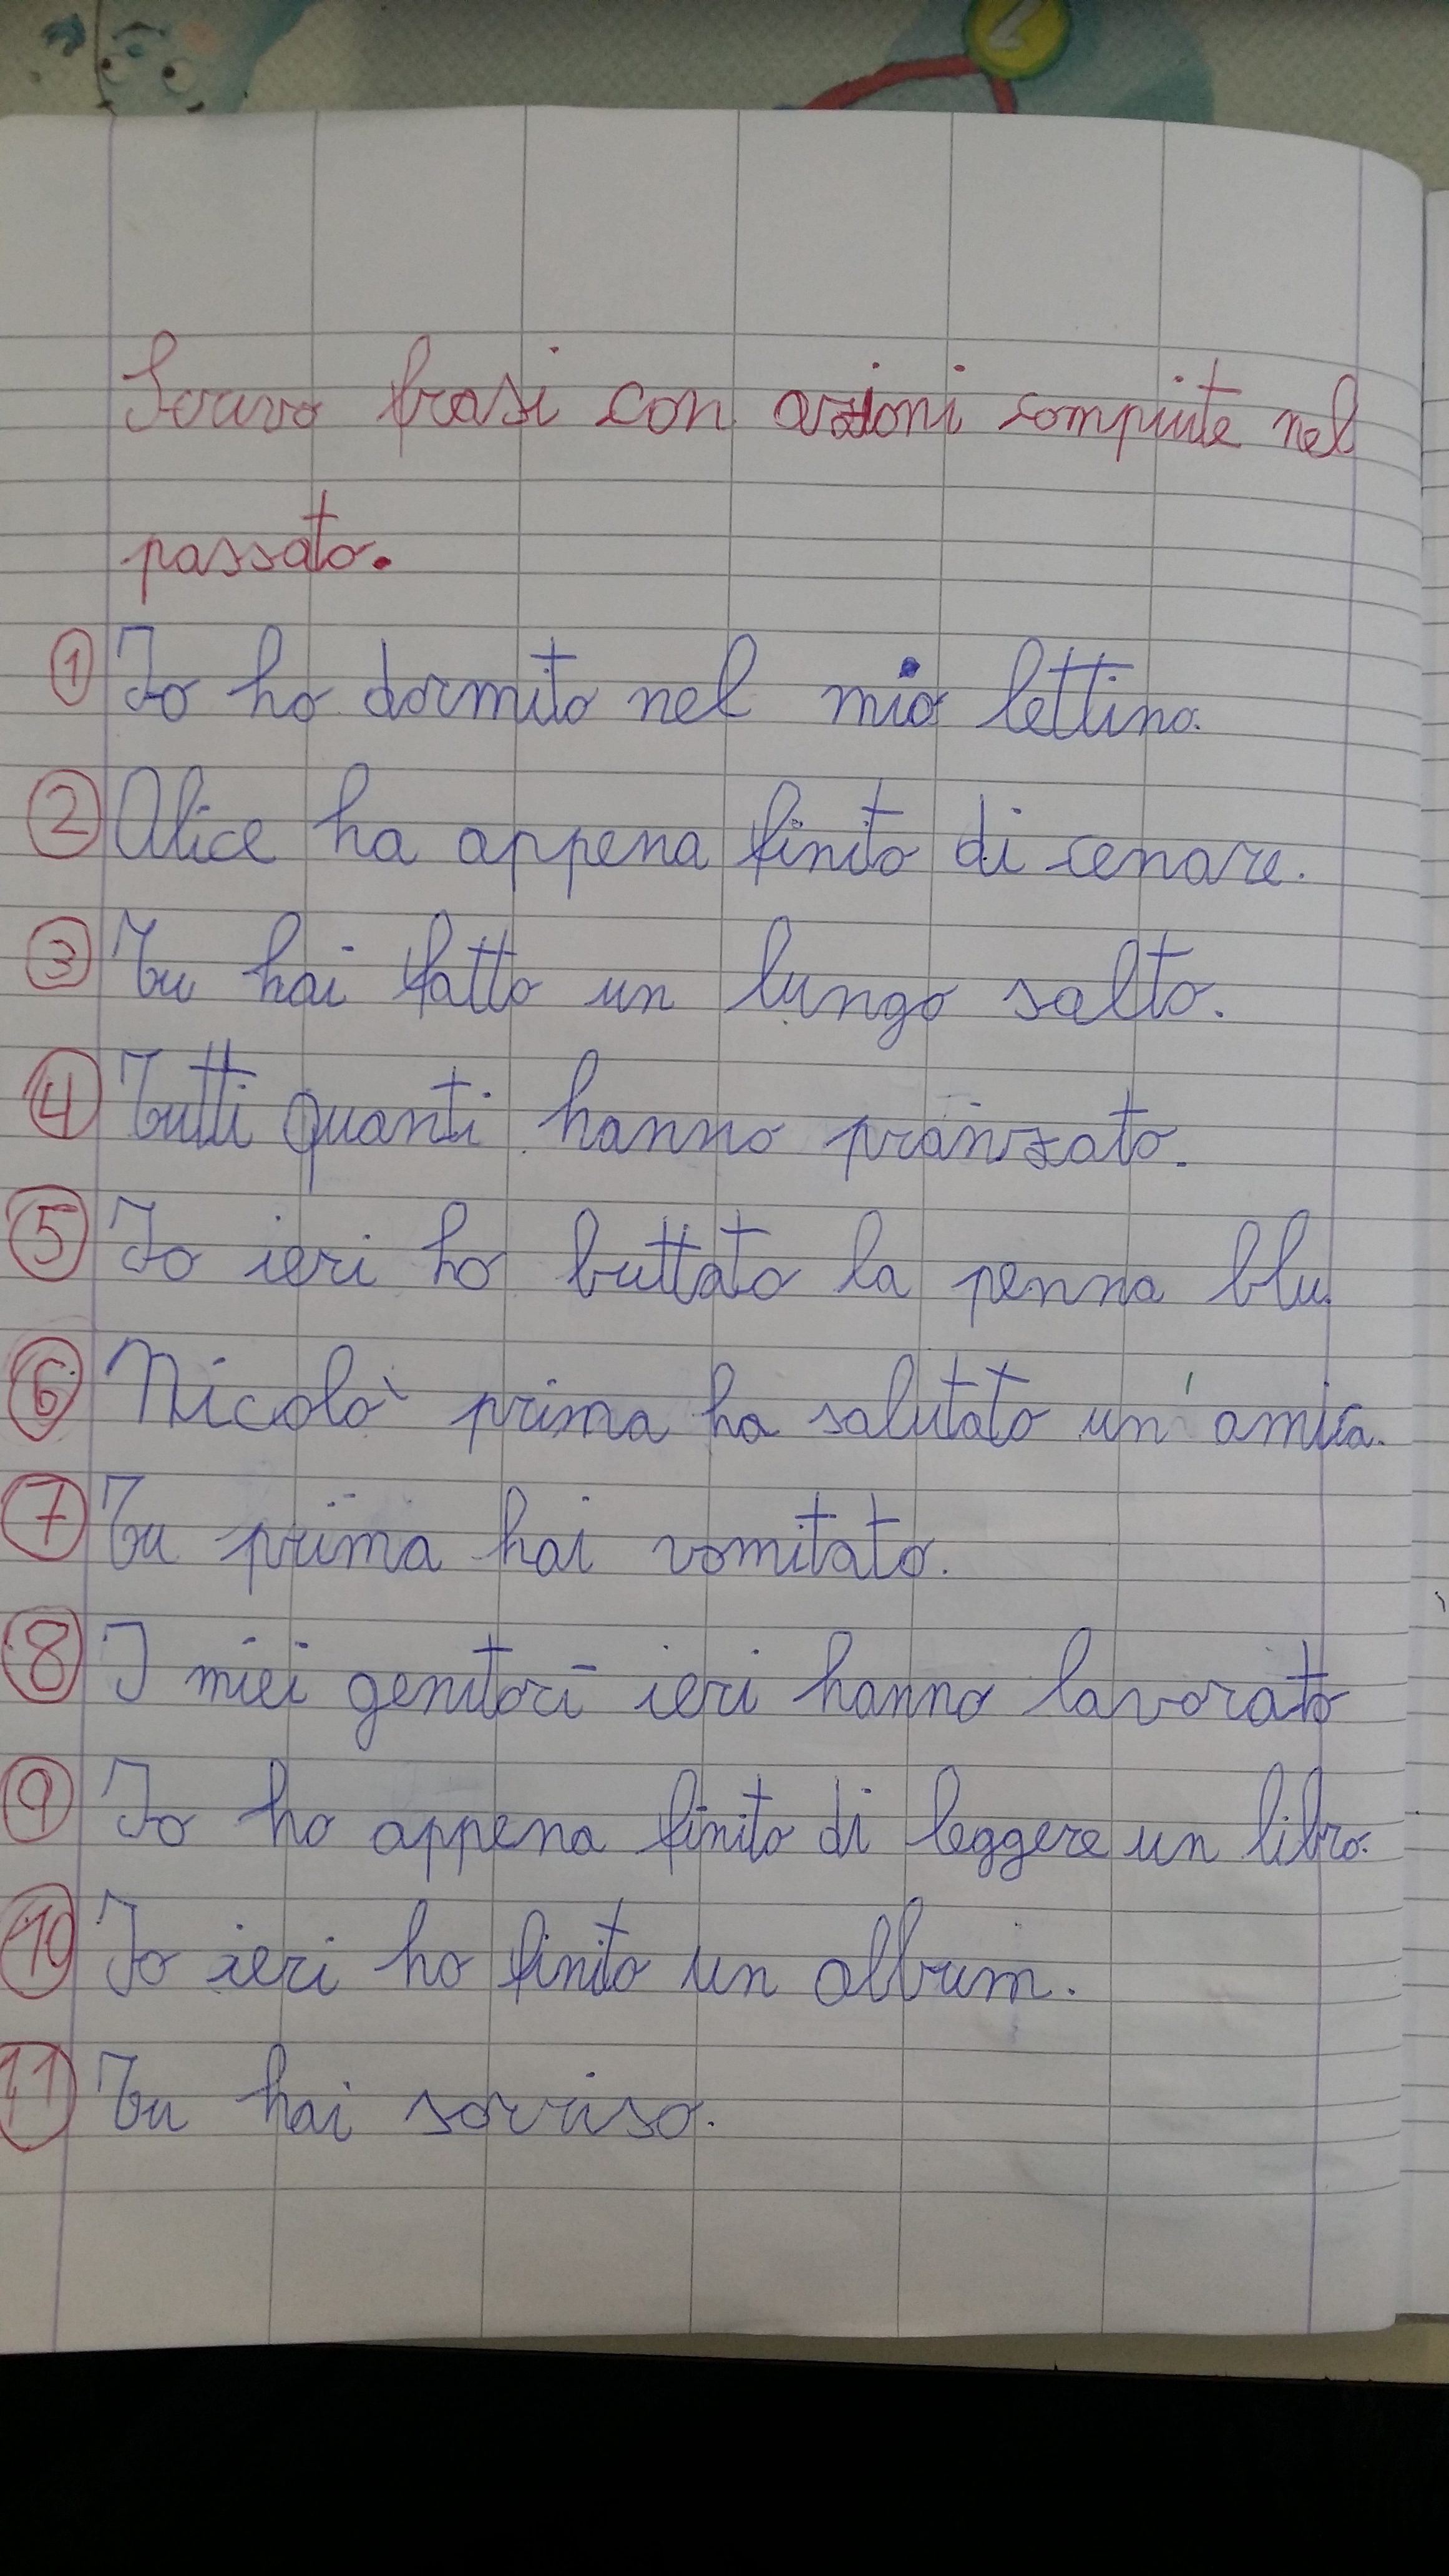 Scrivo frasi con azioni compiute nel
passato.
1 Io ho dormito nel mio lettino.
2 Alice ha appena finito di cenare.
3 Tu hai fatto un lungo salto.
4 Tutti quanti hanno pranzato.
5 Io ieri ho buttato la penna blu.
6 Nicolò prima ha salutato un'amica.
7 Tu prima hai vomitato.
8 I miei genitori ieri hanno lavorato
9 Io ho appena finito di leggere un libro.
10 Io ieri ho finito un album.
11 Tu hai sorriso.